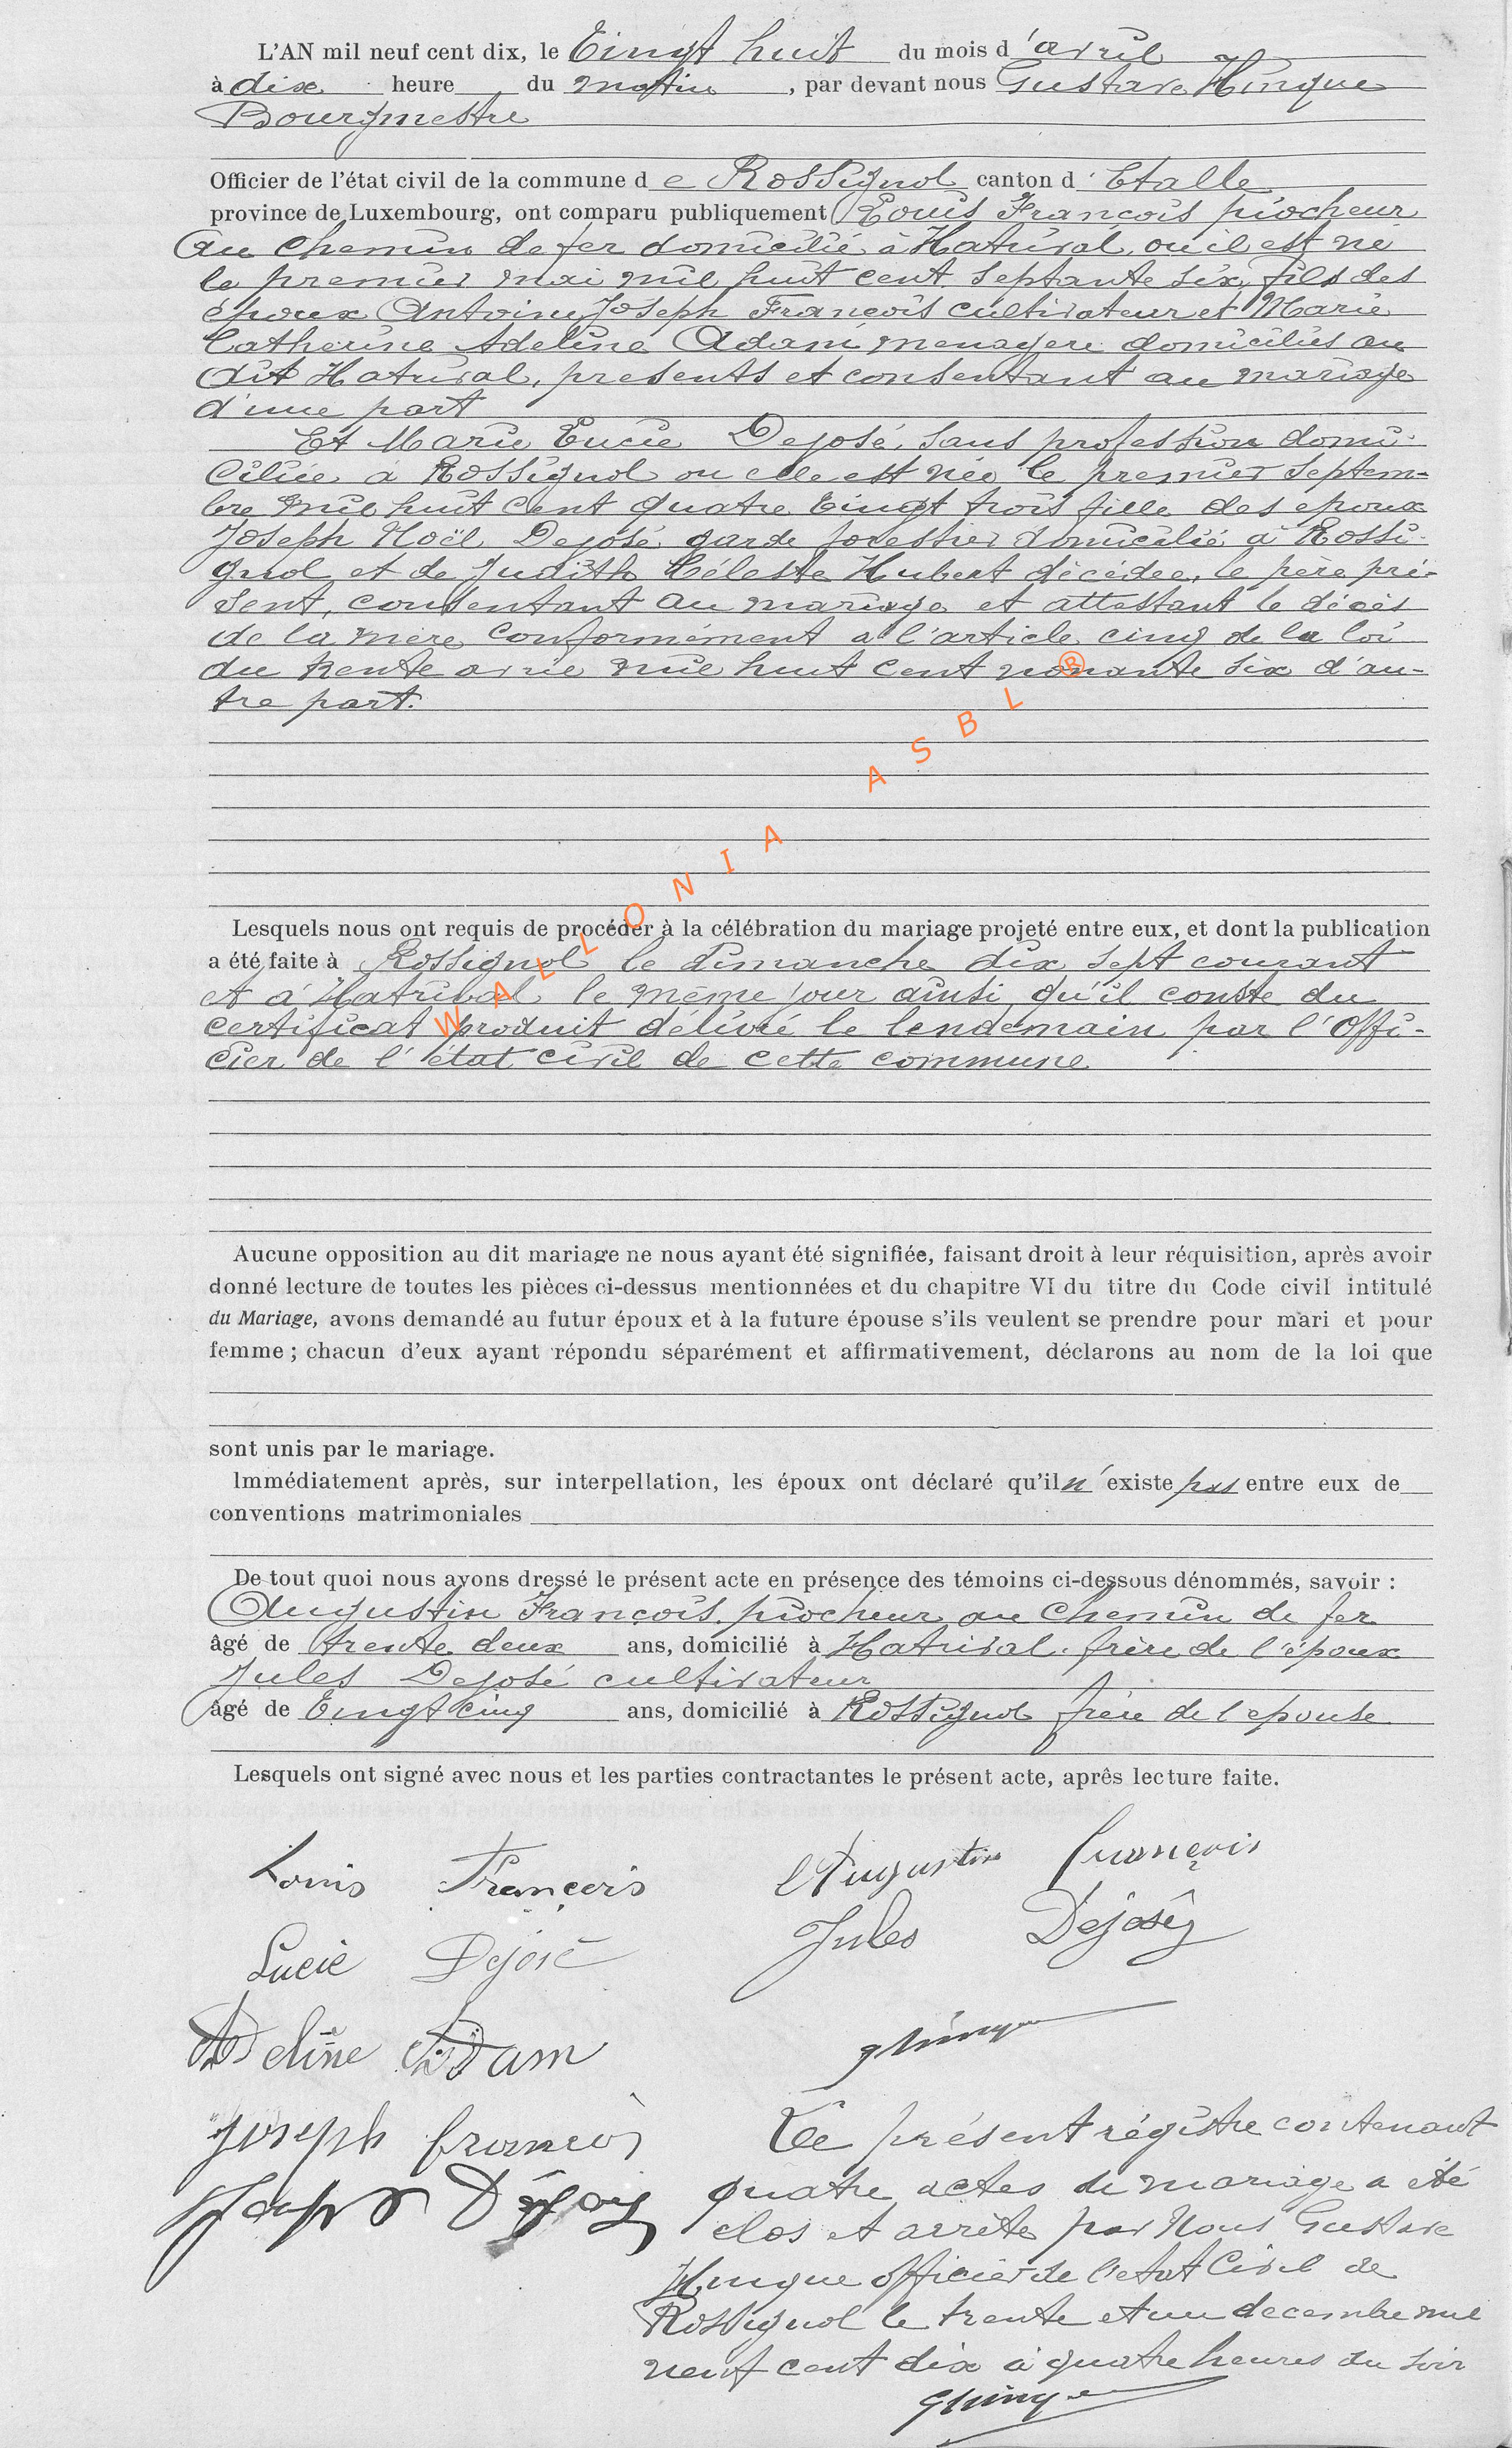 L'AN mil neuf cent dix, le Vingt huit du mois d'avril
à dix heure du matin, par devant nous Gustave Hinque
Bourgmestre
Officier de l'état civil de la commune de Rossignol canton d'Etalle
province de Luxembourg, ont comparu publiquement Louis François piocheur
au chemin de fer domicilié à Hatrival, ou il est né
le premier mai mil huit cent septante six, fils des
époux Antoine Joseph François cultivateur et Marie
Catherine Adeline Adam menagère domiciliés au
dit Hatrival, presents et consentant au mariage
d'une part
Et Marie Lucie Dejosé, sans profession domi-
ciliée à Rossignol ou elle est née le premier septem-
bre mil huit cent quatre vingt trois fille des epoux
Joseph Noël Dejosé garde forestier domicilié à Rossi-
gnol et de Judith Céleste Hubert décédée, le père pré-
sent, consentant au mariage et attestant le décès
de la mère conformément a l'article cinq de la loi
du trente avril mil huit cent nonante six d'au-
tre part.
WALLONIA ASBL ®
Lesquels nous ont requis de procéder à la célébration du mariage projeté entre eux, et dont la publication
a été faite à Rossignol le dimanche dix sept courant
et à Hatrival le même jour ainsi qu'il conste du
certificat produit délivré le lendemain par l'Offi-
cier de l'état civil de cette commune
Aucune opposition au dit mariage ne nous ayant été signifiée, faisant droit à leur réquisition, après avoir
donné lecture de toutes les pièces ci-dessus mentionnées et du chapitre VI du titre du Code civil intitulé
du Mariage, avons demandé au futur époux et à la future épouse s'ils veulent se prendre pour mari et pour
femme ; chacun d'eux ayant répondu séparément et affirmativement, déclarons au nom de la loi que
sont unis par le mariage.
Immédiatement après, sur interpellation, les époux ont déclaré qu'il n'existe pas entre eux de
conventions matrimoniales
De tout quoi nous avons dressé le présent acte en présence des témoins ci-dessous dénommés, savoir :
Augustin François, piocheur au chemin de fer
âgé de trente deux ans, domicilié à Hatrival, frère de l'époux
Jules Dejosé cultivateur
âgé de Vingt cinq ans, domicilié à Rossignol frère de l'epouse
Lesquels ont signé avec nous et les parties contractantes le présent acte, après lecture faite.
Louis François Augustin François
Lucie Dejosé Jules Dejosé
Adeline Adam GHinque
Joseph François
Joseph Dejosé
Le présent régistre contenant
quatre actes de mariage a été
clos et arrêté par Nous Gustave
Hinque officier de l'etat Civil de
Rossignol le trente et un decembre mil
neuf cent dix à quatre heures du soir
GHinque